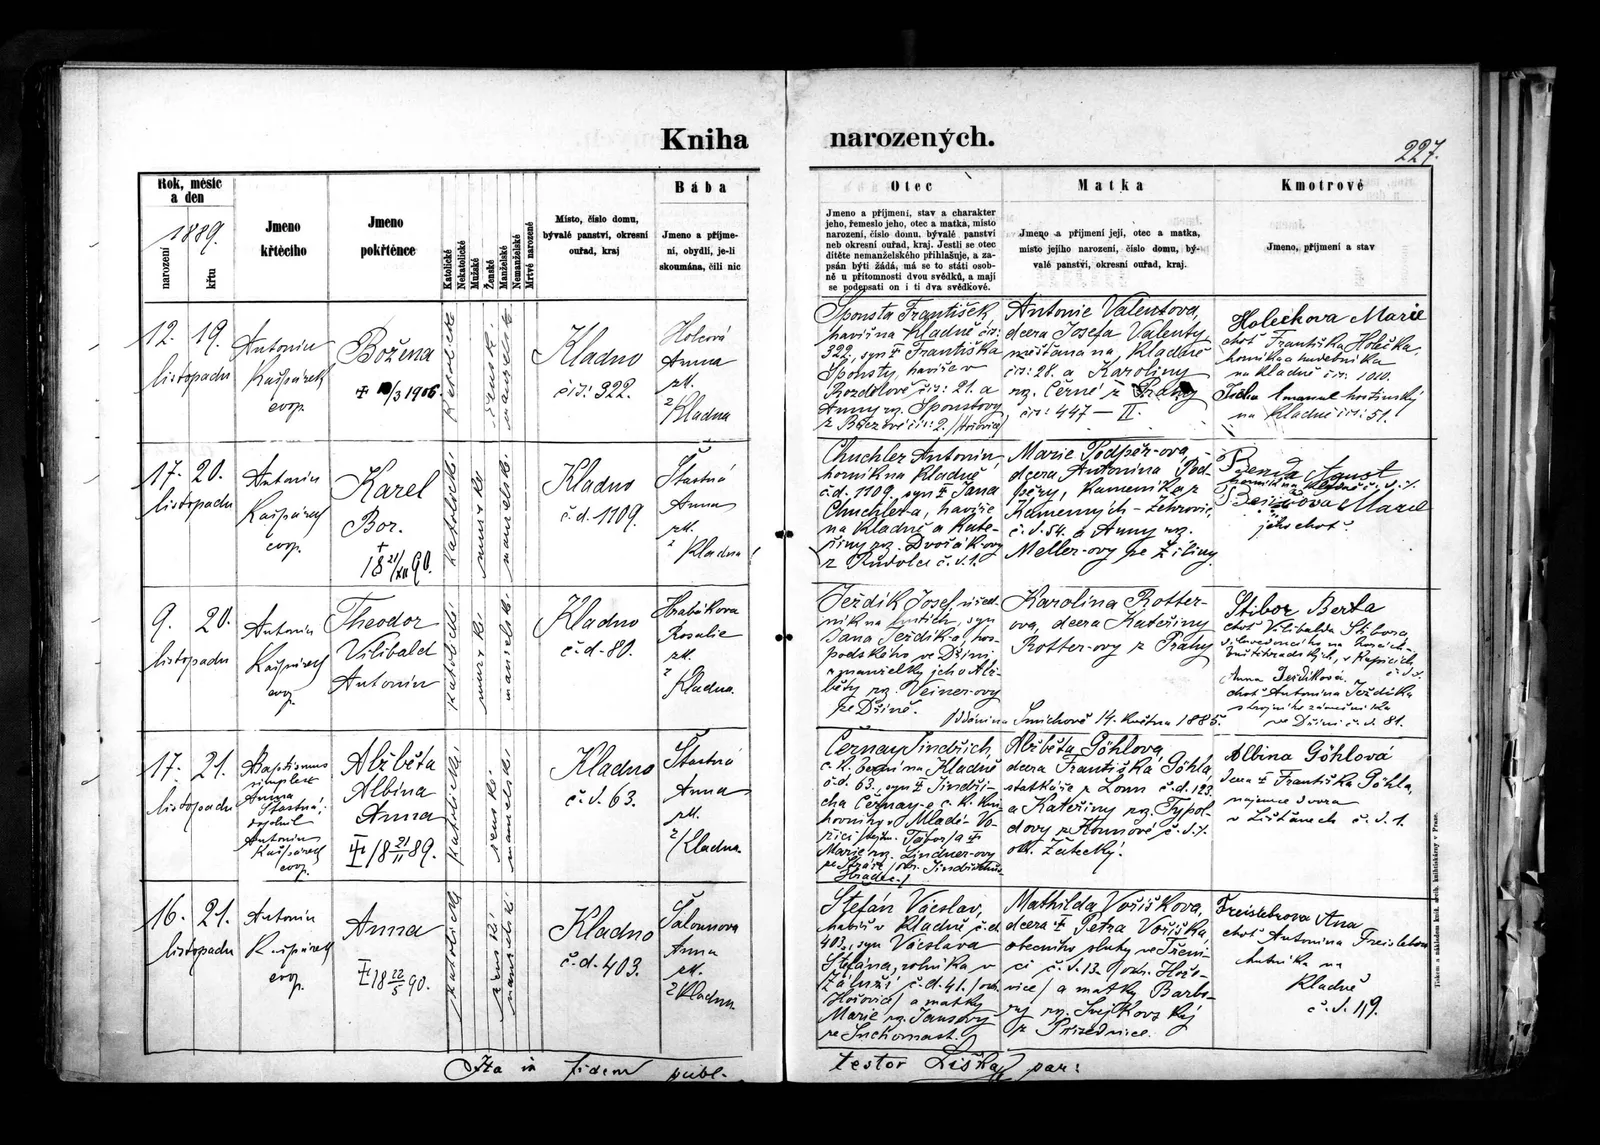 Kniha narozených.
227.
Rok, měsíc
a den
1889.
narození
křtu
Jmeno
křtícího
Jmeno
pokřtěnce
Katolické
Nekatolické
Mužské
Ženské
Manželské
Nemanželské
Mrtvé narozené
Místo, číslo domu,
bývalé panství, okresní
ouřad, kraj
Bába
Jmeno a příjme-
ní, obydlí, je-li
skoumána, čili nic
Otec
Jmeno a příjmení, stav a charakter
jeho, řemeslo jeho, otec a matka, místo
narození, číslo domu, bývalé panství
neb okresní ouřad, kraj. Jestli se otec
dítěte nemanželského přihlašuje, a za-
psán býti žádá, má se to státi osob-
ně u přítomnosti dvou svědků, a mají
se podepsati on i ti dva svědkové.
Matka
Jmeno a příjmení její, otec a matka,
místo jejího narození, číslo domu, bý-
valé panství, okresní ouřad, kraj.
Kmotrové
Jmeno, příjmení a stav
12. 19.
listopadu
Antonín
Kašpárek
coop.
Božena
/3 1906.
Katolické
ženské.
manželské
Kladno
čís: 322.
Holcová
Anna
zk.
z Kladna
Sponsta František
havíř na Kladně čís:
322, syn Františka
Sponsty, havíře v
Rozdělově čís: 21. a
Anny roz. Sponstovy
Antonie Valentova,
dcera Josefa Valenty
měšťana na Kladně
čís: 28. a Karoliny
roz. Černé z Prahy
čís: 447 — II.
Holečkova Marie
choť Františka Holečka,
horníka a hudebníka
na Kladně čís: 1010.
na Kladně čís: 51.
17. 20.
listopadu
Antonín
Kašpárek
coop.
Karel
Bor.
+
18 21/XII 90.
Katolické.
mužské
manželské.
Kladno
č.d. 1109.
Šťastná
Anna
zk.
z Kladna
Chuchler Antonín,
horník na Kladně,
č.d. 1109, syn Jana
Chuchlera, havíře
na Kladně a Kate-
řiny roz. Dvořák-ovy
č.d. 1.
Marie Podpěr-ová,
dcera Antonína Pod-
pěry, kameníka z
Kamenných-Žehrovic,
č.d. 54. a Anny roz.
Meller-ovy ze Žiliny.
jeho choť.
9. 20.
listopadu
Antonín
Kašpárek
coop.
Theodor
Vilibald
Antonín
Katolické
mužské.
manželské.
Kladno
č.d. 80.
Hrabákova
Rosalie
zk.
z Kladna.
Ježdík Josef, úřed-
ník na hutích, syn
Jana Ježdíka, hos-
podského ve Dříni
a manželky jeho Alž-
běty roz. Veiner-ovy
ze Dříně.
Karolina Rotter-
ova, dcera Kateřiny
Rotter-ovy z Prahy
Smíchově 14. května 1885.
Stibor Berta
choť Vilibalda Stibora,
Anna Ježdíková
choť Antonína Ježdíka
strojního zámečníka
ve Dříni č.d. 81.
17. 21.
listopadu
Baptismus
simplex
Anna
Šťastná.
doplnil
Antonín
Kašpárek
coop.
Alžběta
Albina
Anna
18 21/11 89.
Katolické
ženské.
manželské
Kladno
č.d. 63.
Šťastná
Anna
zk.
z Kladna.
Černay Jindřich,
na Kladně
č.d. 63., syn Jindři-
cha Černay-e
Marie roz. Lindner-ovy
Alžběta Göhlová,
dcera Františka Göhla,
statkáře z Loun č.d. 123
a Kateřiny roz. Typol-
dovy z Hounové č.d. 7.
okr. Žatecký.
Albina Göhlová
dcera Františka Göhla,
nájemce dvora
v Lištanech č.d. 1.
16. 21.
listopadu
Antonín
Kašpárek
coop.
Anna
18 22/5 90.
Katolické
ženské
manželské
Kladno
č.d. 403.
Šalounova
Anna
zk.
z Kladna.
Štefán Václav,
havíř v Kladně č.d.
403., syn Václava
Štefána, rolníka v
Záluží č.d. 41. /okr.
Hořovice/ a matky
Marie roz. Jansovy
ze Suchomast.
Mathilda Voříškova,
dcera Petra Voříška,
obecního sluhy ve Třeni-
ci č.d. 13. /okr. Hořo-
vice/ a matky Barbo-
ry roz. Svejkovský
z Praskolice.
Freislebnova Ana
choť Antonína Freislebna
hutníka na
Kladně
č.d. 119.
Ita in fidem publ.
testor Liška par:
Tiskem a nákladem knih. arcib. knihtiskárny v Praze.